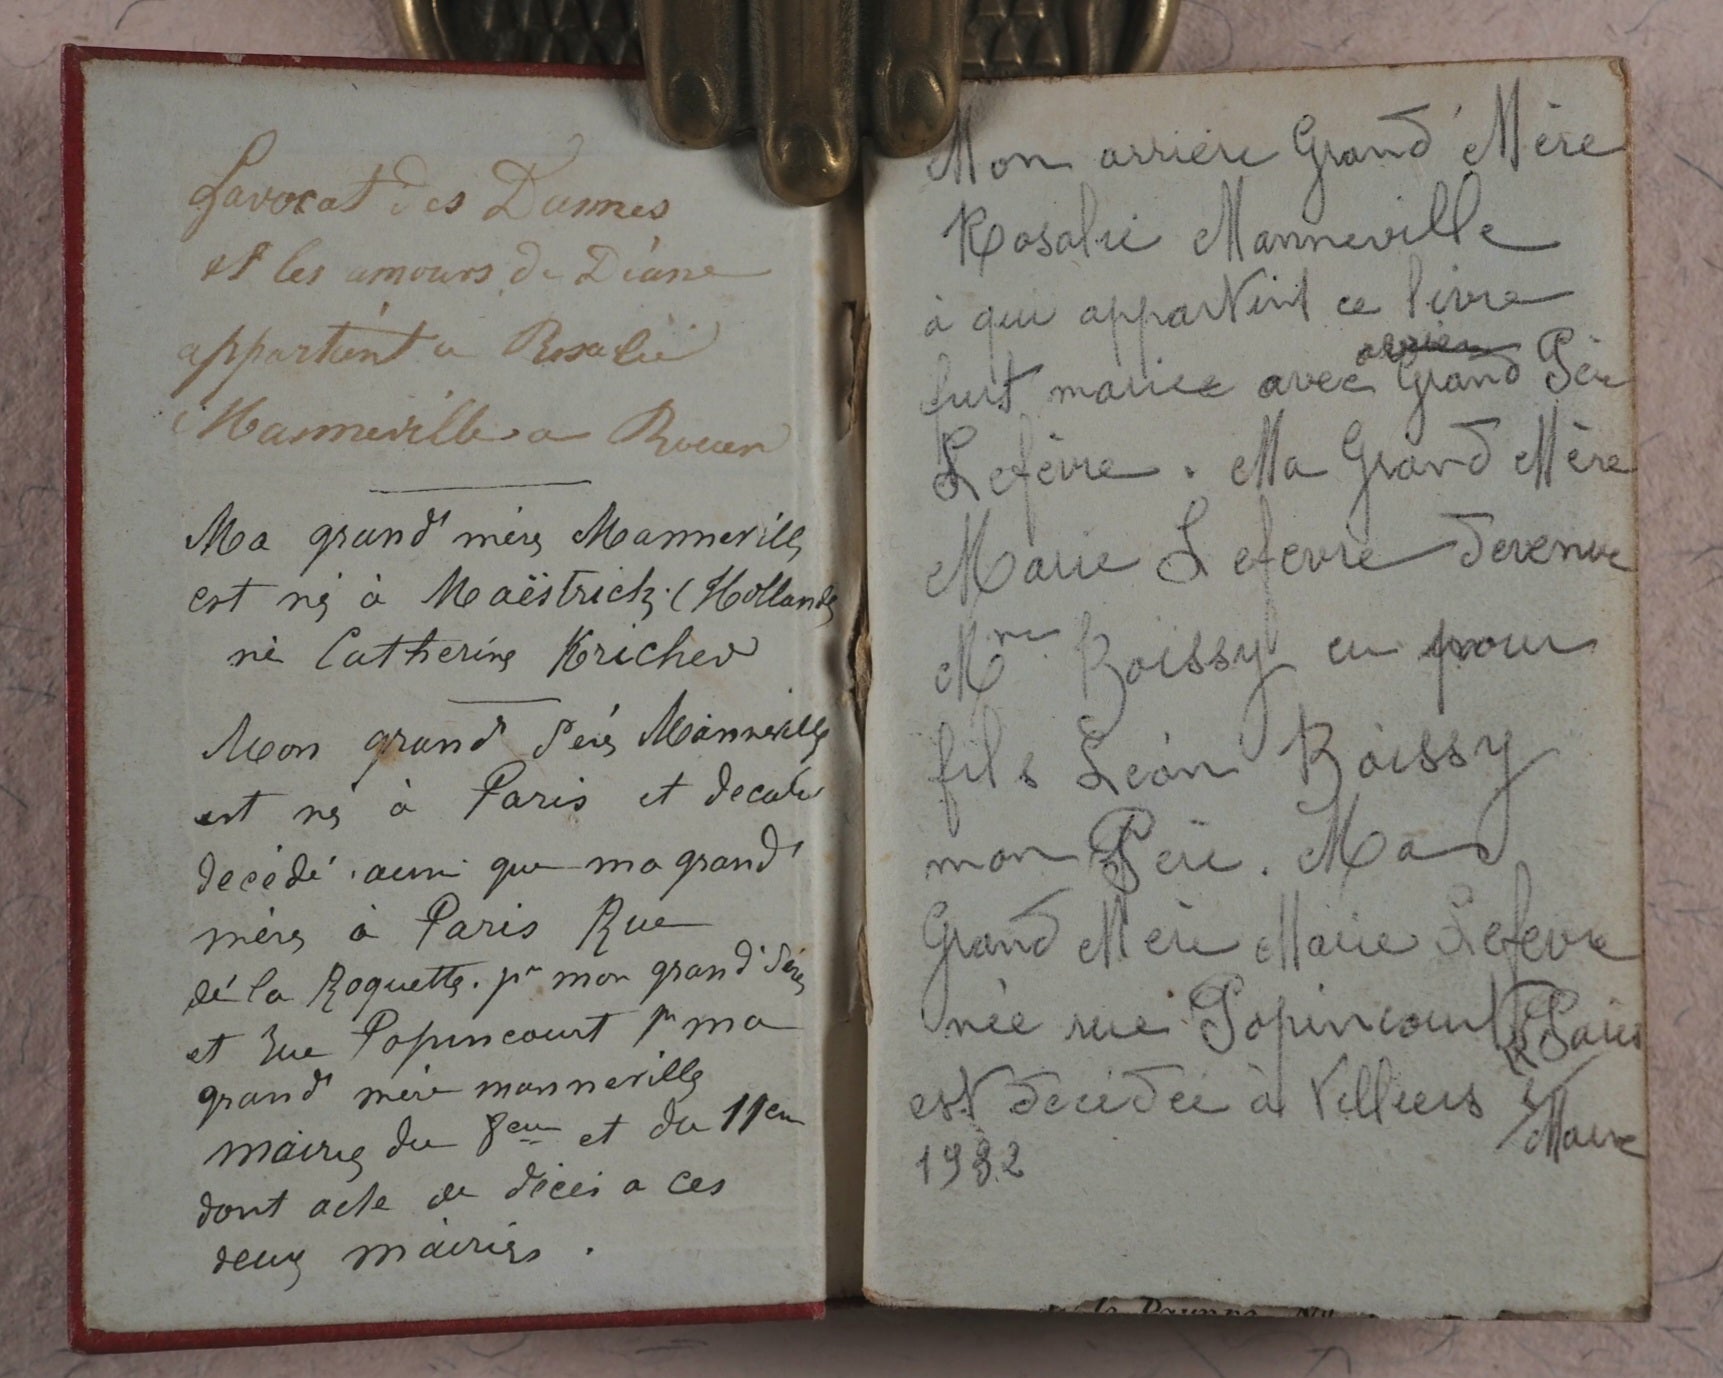 Lavocat des Dammes
et les amours de Diane
appartient a Rosalie
Manneville a Rouen
Ma grand' mère Manneville
est né à Maëstrick (Hollande
né Catherine Kricher
Mon grand Père Manneville
est né à Paris et decede
decédé aussi que ma grand'
mère à Paris Rue
dé la Roquette. pr mon grand' Père
et Rue Popincourt pr ma
grand' mère manneville
mairie du 8eme et du 11em
dont acte de décès a ces
deux mairies.
Mon arrière Grand' Mère
Rosalie Manneville
à qui appartint ce livre
fut mariée avec arrière Grand Père
Lefèvre. Ma Grand Mère
Marie Lefevre devenue
Mme Boissy eu pour
fils Léon Boissy
mon Père. Ma
Grand Mère Marie Lefevre
née rue Popincourt Paris
est decidée à Villiers s/ Marne
1932